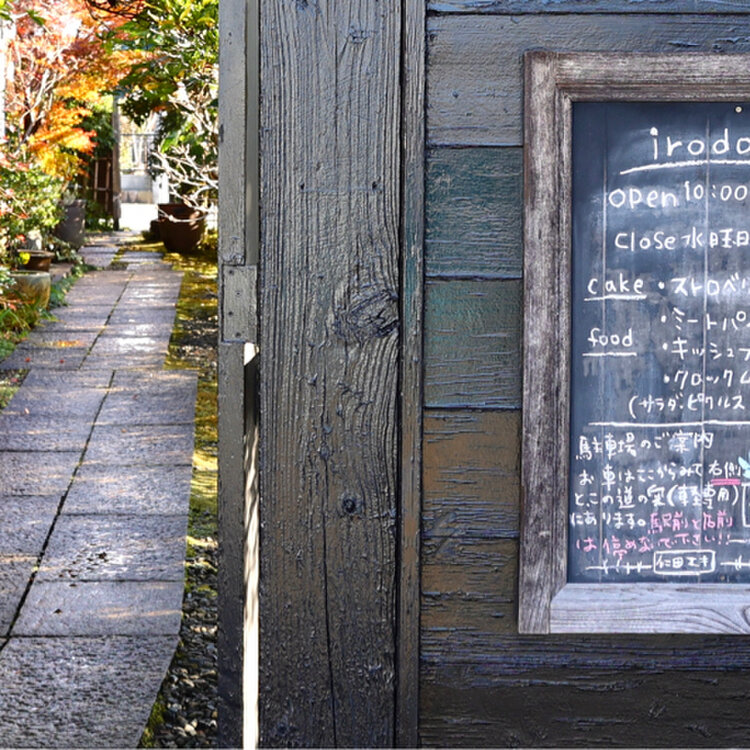 irodo
open 10:00
close 水曜日
cake ・ストロベ
・ミートパ
food ・キッシュプ
・クロックム
(サラダ、ピクルス
駐車場のご案内
お車はここからみて右側
と、この道の奥(軽専用)
にあります。駅前と店前
は停めないで下さい!!
仁田エキ